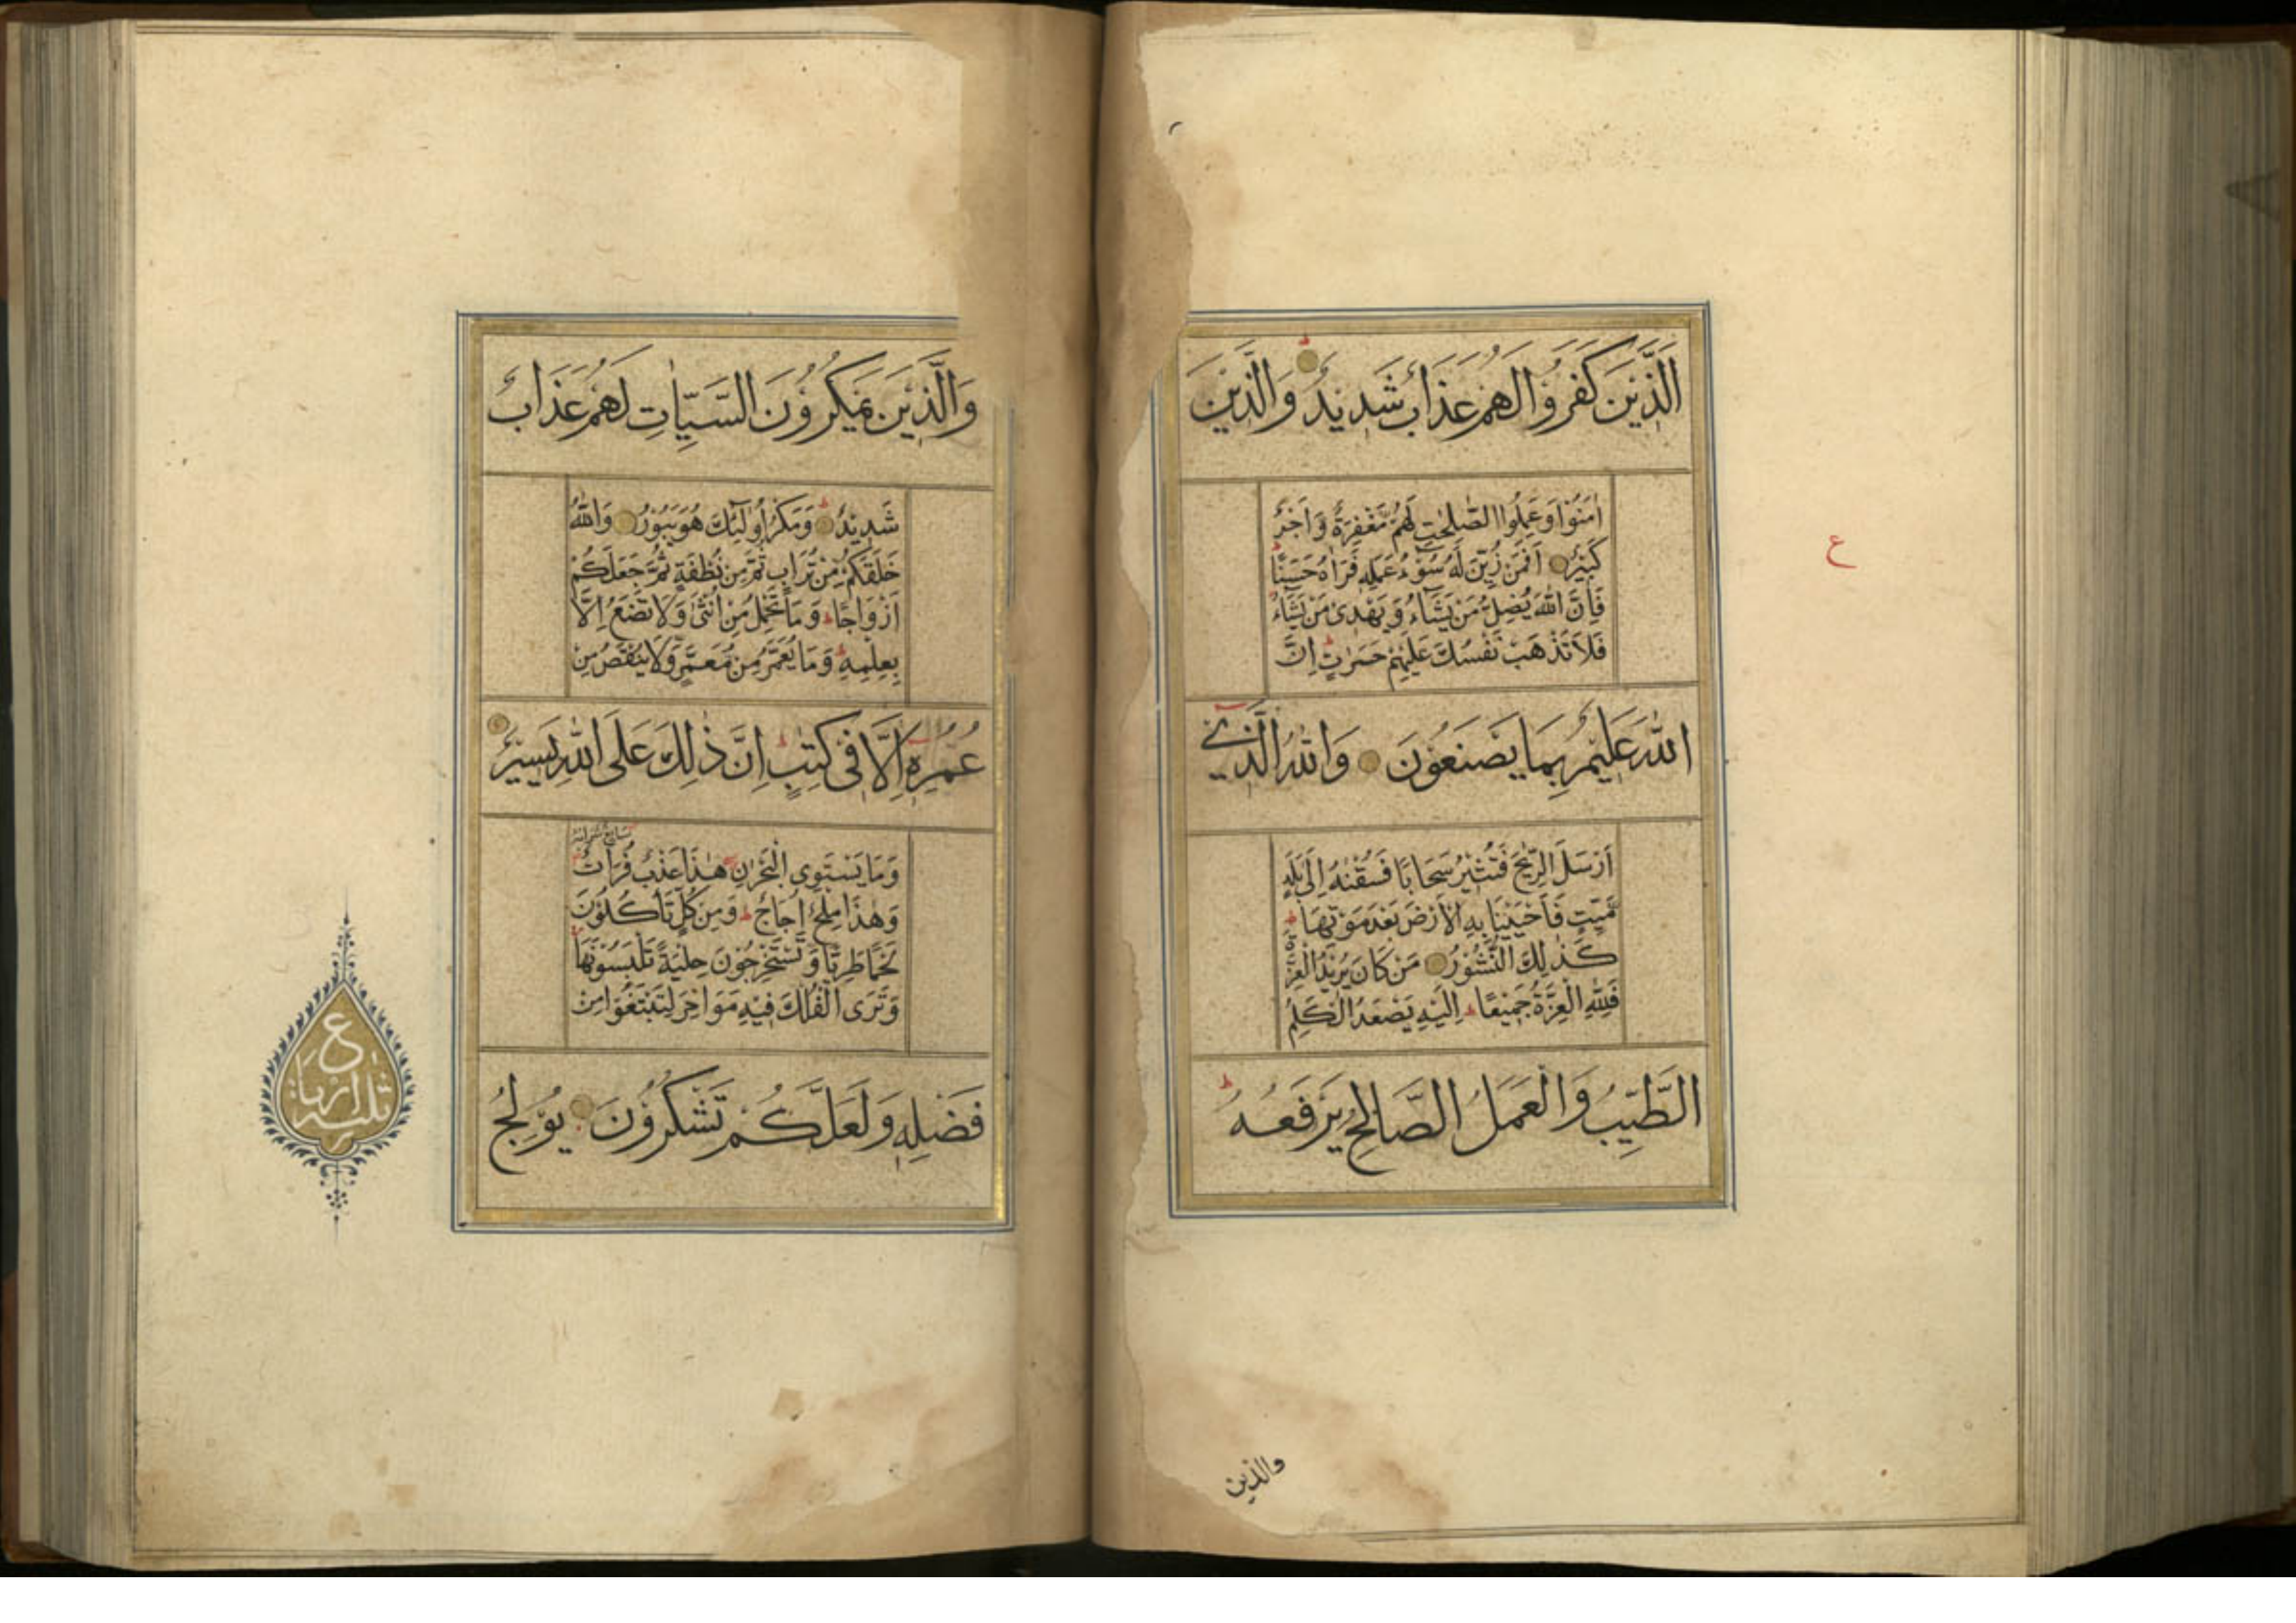 اَلَّذِيْنَ كَفَرُوْا لَهُمْ عَذَابٌ شَدِيْدٌ وَالَّذِيْنَ
اٰمَنُوْا وَعَمِلُوا الصّٰلِحٰتِ لَهُمْ مَّغْفِرَةٌ وَّاَجْرٌ
كَبِيْرٌ اَفَمَنْ زُيِّنَ لَهٗ سُوْٓءُ عَمَلِهٖ فَرَاٰهُ حَسَنًا
فَاِنَّ اللّٰهَ يُضِلُّ مَنْ يَّشَآءُ وَيَهْدِىْ مَنْ يَّشَآءُ
فَلَا تَذْهَبْ نَفْسُكَ عَلَيْهِمْ حَسَرٰتٍ اِنَّ
اللّٰهَ عَلِيْمٌۢ بِمَا يَصْنَعُوْنَ وَاللّٰهُ الَّذِىْ
اَرْسَلَ الرِّيٰحَ فَتُثِيْرُ سَحَابًا فَسُقْنٰهُ اِلٰى بَلَدٍ
مَّيِّتٍ فَاَحْيَيْنَا بِهِ الْاَرْضَ بَعْدَ مَوْتِهَا
كَذٰلِكَ النُّشُوْرُ مَنْ كَانَ يُرِيْدُ الْعِزَّةَ
فَلِلّٰهِ الْعِزَّةُ جَمِيْعًا اِلَيْهِ يَصْعَدُ الْكَلِمُ
الطَّيِّبُ وَالْعَمَلُ الصَّالِحُ يَرْفَعُهٗ
والذين
ع
وَالَّذِيْنَ يَمْكُرُوْنَ السَّيِّاٰتِ لَهُمْ عَذَابٌ
شَدِيْدٌ وَمَكْرُ اُولٰٓئِكَ هُوَ يَبُوْرُ وَاللّٰهُ
خَلَقَكُمْ مِّنْ تُرَابٍ ثُمَّ مِنْ نُّطْفَةٍ ثُمَّ جَعَلَكُمْ
اَزْوَاجًا وَمَا تَحْمِلُ مِنْ اُنْثٰى وَلَا تَضَعُ اِلَّا
بِعِلْمِهٖ وَمَا يُعَمَّرُ مِنْ مُّعَمَّرٍ وَّلَا يُنْقَصُ مِنْ
عُمُرِهٖٓ اِلَّا فِىْ كِتٰبٍ اِنَّ ذٰلِكَ عَلَى اللّٰهِ يَسِيْرٌ
وَمَا يَسْتَوِى الْبَحْرٰنِ هٰذَا عَذْبٌ فُرَاتٌ
سَآئِغٌ شَرَابُهٗ
وَهٰذَا مِلْحٌ اُجَاجٌ وَمِنْ كُلٍّ تَاْكُلُوْنَ
لَحْمًا طَرِيًّا وَّتَسْتَخْرِجُوْنَ حِلْيَةً تَلْبَسُوْنَهَا
وَتَرَى الْفُلْكَ فِيْهِ مَوَاخِرَ لِتَبْتَغُوْا مِنْ
فَضْلِهٖ وَلَعَلَّكُمْ تَشْكُرُوْنَ يُوْلِجُ
ع
ثلثة ارباع